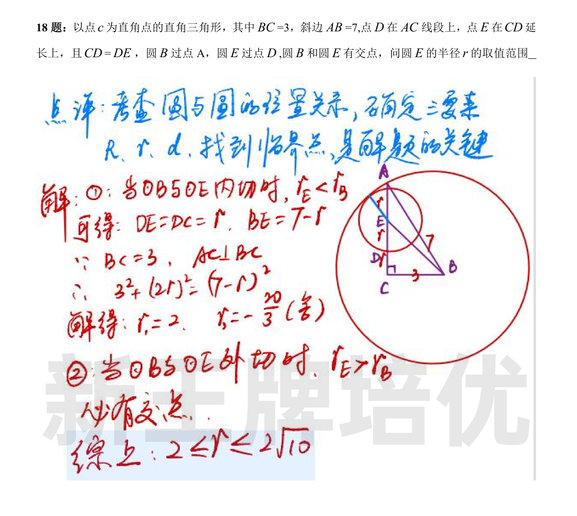 18 题：以点 c 为直角点的直角三角形，其中 BC=3，斜边 AB=7,点 D 在 AC 线段上，点 E 在 CD 延
长上，且 CD=DE，圆 B 过点 A，圆 E 过点 D ,圆 B 和圆 E 有交点，问圆 E 的半径 r 的取值范围_
点评：考查圆与圆的位置关系，确定三要素
R、r、d，找到临界点，是解题的关键
解：①：当⊙B与⊙E内切时，rE<rB
可得：DE=DC=r，BE=7-r
∵ BC=3，AC⊥BC
∴ 3²+(2r)²=(7-r)²
解得：r₁=2，r₂=-20/3（舍）
②：当⊙B与⊙E外切时，rE>rB
必有交点.
综上：2≤r≤2√10
A
r
E
r
7
D
r
C
3
B
新王牌培优